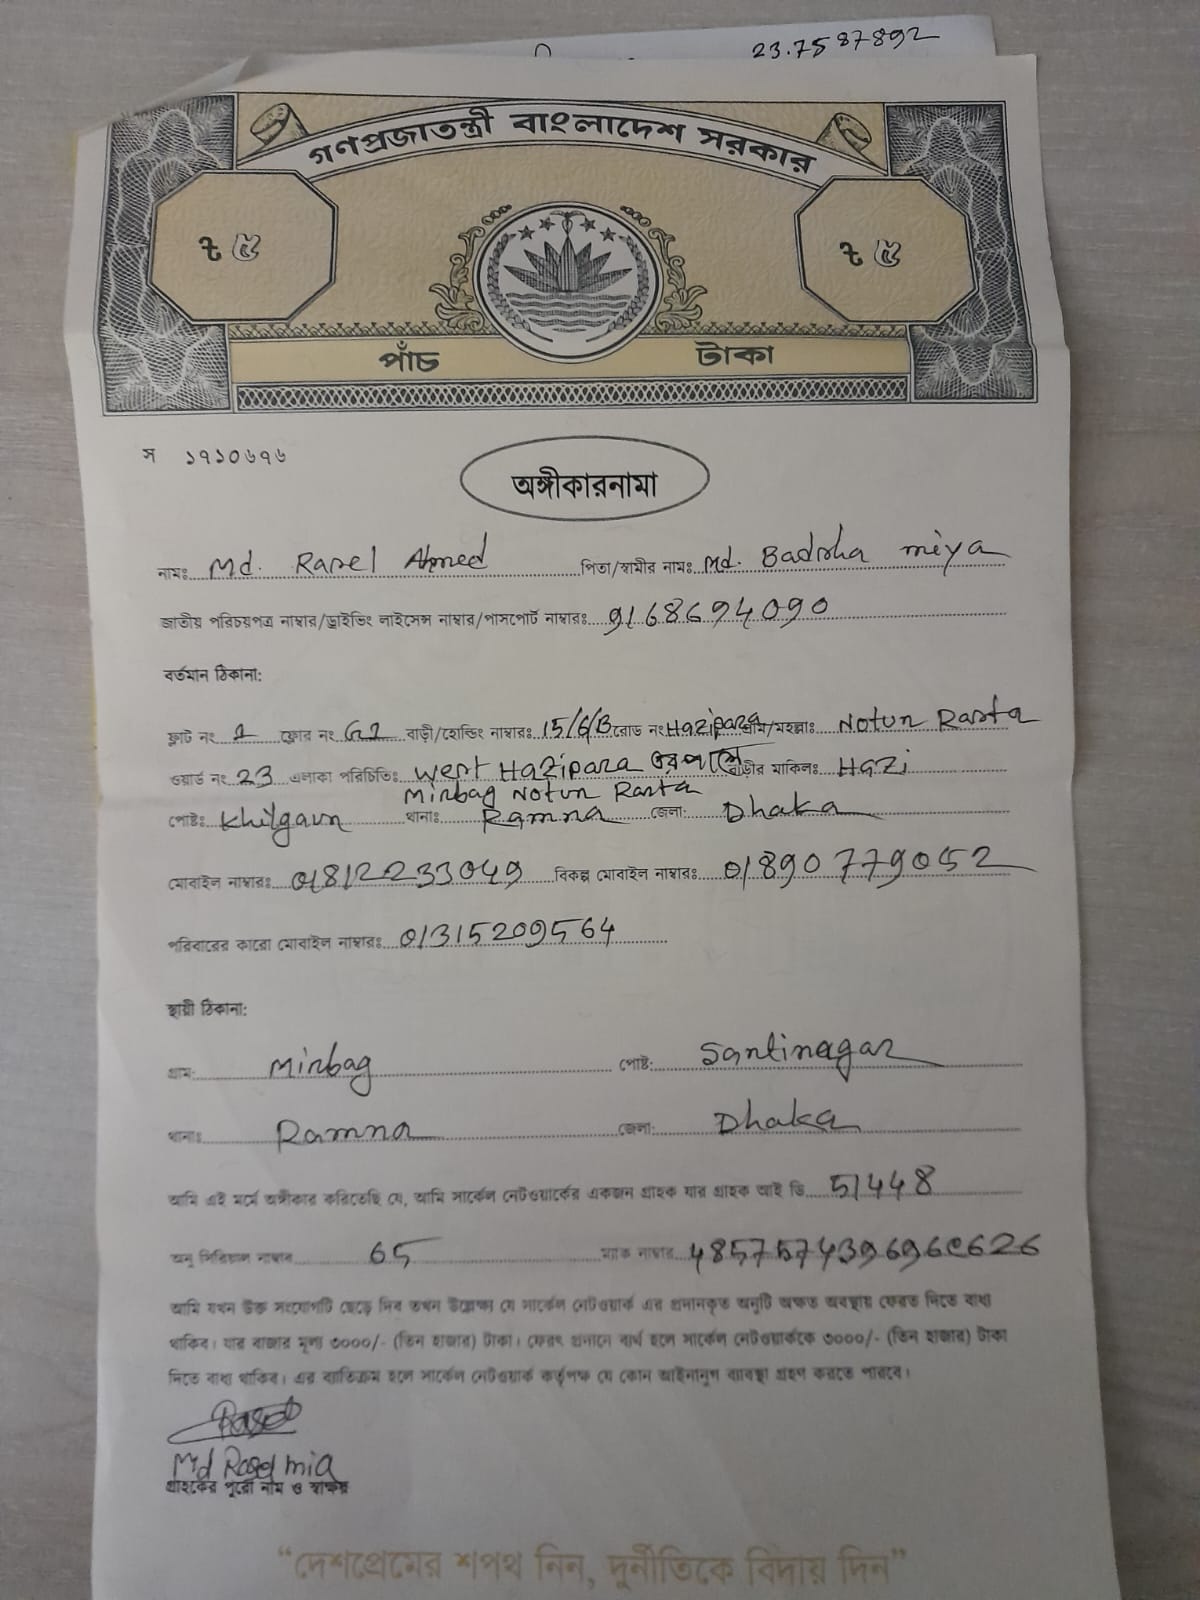 23.7587892
গণপ্রজাতন্ত্রী বাংলাদেশ সরকার
৳ ৫ ৳ ৫
পাঁচ টাকা
স ১৭১০৬৭৬
অঙ্গীকারনামা
নামঃ Md. Rasel Ahmed পিতা/স্বামীর নামঃ Md. Badsha miya
জাতীয় পরিচয়পত্র নাম্বার/ড্রাইভিং লাইসেন্স নাম্বার/পাসপোর্ট নাম্বারঃ 9168694090
বর্তমান ঠিকানা:
ফ্লাট নং 1 ফ্লোর নং G1 বাড়ী/হোল্ডিং নাম্বারঃ 15/6/B রোড নং Hazipara গ্রাম/মহল্লাঃ Notun Rasta
ওয়ার্ড নং 23 এলাকা পরিচিতিঃ West Hazipara বাড়ীর মালিকঃ Hazi
Mirbag Notun Rasta
পোষ্টঃ Khilgaun থানাঃ Ramna জেলা: Dhaka
মোবাইল নাম্বারঃ 01812233049 বিকল্প মোবাইল নাম্বারঃ 01890779052
পরিবারের কারো মোবাইল নাম্বারঃ 01315209564
স্থায়ী ঠিকানা:
গ্রাম: Mirbag পোষ্ট: Santinagar
থানাঃ Ramna জেলা: Dhaka
আমি এই মর্মে অঙ্গীকার করিতেছি যে, আমি সার্কেল নেটওয়ার্কের একজন গ্রাহক যার গ্রাহক আই ডি 51448
অনু সিরিয়াল নাম্বার 65 ম্যাক নাম্বার 485757439696C626
আমি যখন উক্ত সংযোগটি ছেড়ে দিব তখন উল্লেক্ষ্য যে সার্কেল নেটওয়ার্ক এর প্রদানকৃত অনুটি অক্ষত অবস্থায় ফেরত দিতে বাধ্য
থাকিব। যার বাজার মূল্য ৩০০০/- (তিন হাজার) টাকা। ফেরৎ প্রদানে ব্যর্থ হলে সার্কেল নেটওয়ার্ককে ৩০০০/- (তিন হাজার) টাকা
দিতে বাধ্য থাকিব। এর ব্যতিক্রম হলে সার্কেল নেটওয়ার্ক কর্তৃপক্ষ যে কোন আইনানুগ ব্যাবস্থা গ্রহণ করতে পারবে।
Rasel
Md Rasel mia
গ্রাহকের পুরো নাম ও স্বাক্ষর
“দেশপ্রেমের শপথ নিন, দুর্নীতিকে বিদায় দিন”